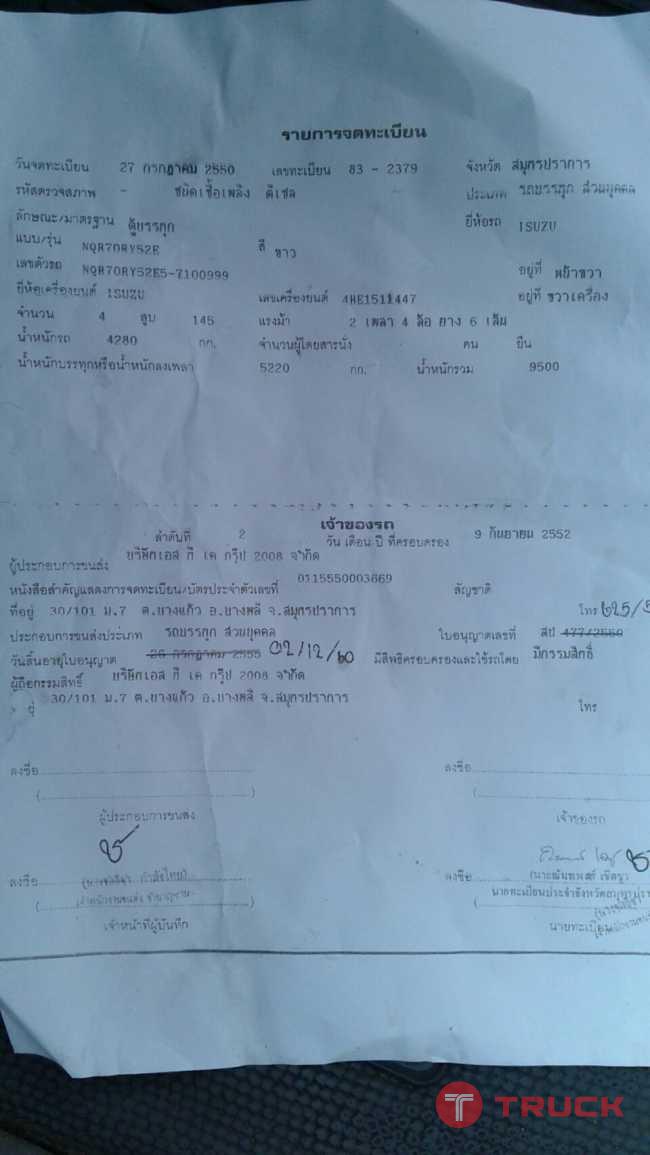 รายการจดทะเบียน
วันจดทะเบียน 27 กรกฎาคม 2550 เลขทะเบียน 83 - 2379 จังหวัด สมุทรปราการ
รหัสตรวจสภาพ - ชนิดเชื้อเพลิง ดีเซล ประเภท รถบรรทุก ส่วนบุคคล
ลักษณะ/มาตรฐาน ตู้บรรทุก ยี่ห้อรถ ISUZU
แบบ/รุ่น NQR70RY52E สี ขาว
เลขตัวรถ NQR70RY52E5-7100999 อยู่ที่ หน้าขวา
ยี่ห้อเครื่องยนต์ ISUZU เลขเครื่องยนต์ 4HE1511447 อยู่ที่ ขวาเครื่อง
จำนวน 4 สูบ 145 แรงม้า 2 เพลา 4 ล้อ ยาง 6 เส้น
น้ำหนักรถ 4280 กก. จำนวนผู้โดยสารนั่ง คน ยืน
น้ำหนักบรรทุกหรือน้ำหนักลงเพลา 5220 กก. น้ำหนักรวม 9500
เจ้าของรถ
ลำดับที่ 2 วัน เดือน ปี ที่ครอบครอง 9 กันยายน 2552
ผู้ประกอบการขนส่ง บริษัทเอส ที เค กรุ๊ป 2008 จำกัด
หนังสือสำคัญแสดงการจดทะเบียน/บัตรประจำตัวเลขที่ 0115550003669 สัญชาติ
ที่อยู่ 30/101 ม.7 ต.บางแก้ว อ.บางพลี จ.สมุทรปราการ โทร
ประกอบการขนส่งประเภท รถบรรทุก ส่วนบุคคล ใบอนุญาตเลขที่ สป 477/2550
วันสิ้นอายุใบอนุญาต 26 กรกฎาคม 2555 02/12/60 มีสิทธิครอบครองและใช้รถโดย มีกรรมสิทธิ์
ผู้ถือกรรมสิทธิ์ บริษัทเอส ที เค กรุ๊ป 2008 จำกัด
30/101 ม.7 ต.บางแก้ว อ.บางพลี จ.สมุทรปราการ โทร
ลงชื่อ ลงชื่อ
ผู้ประกอบการขนส่ง เจ้าของรถ
ลงชื่อ ลงชื่อ
เจ้าหน้าที่ผู้บันทึก นายทะเบียน
TRUCK